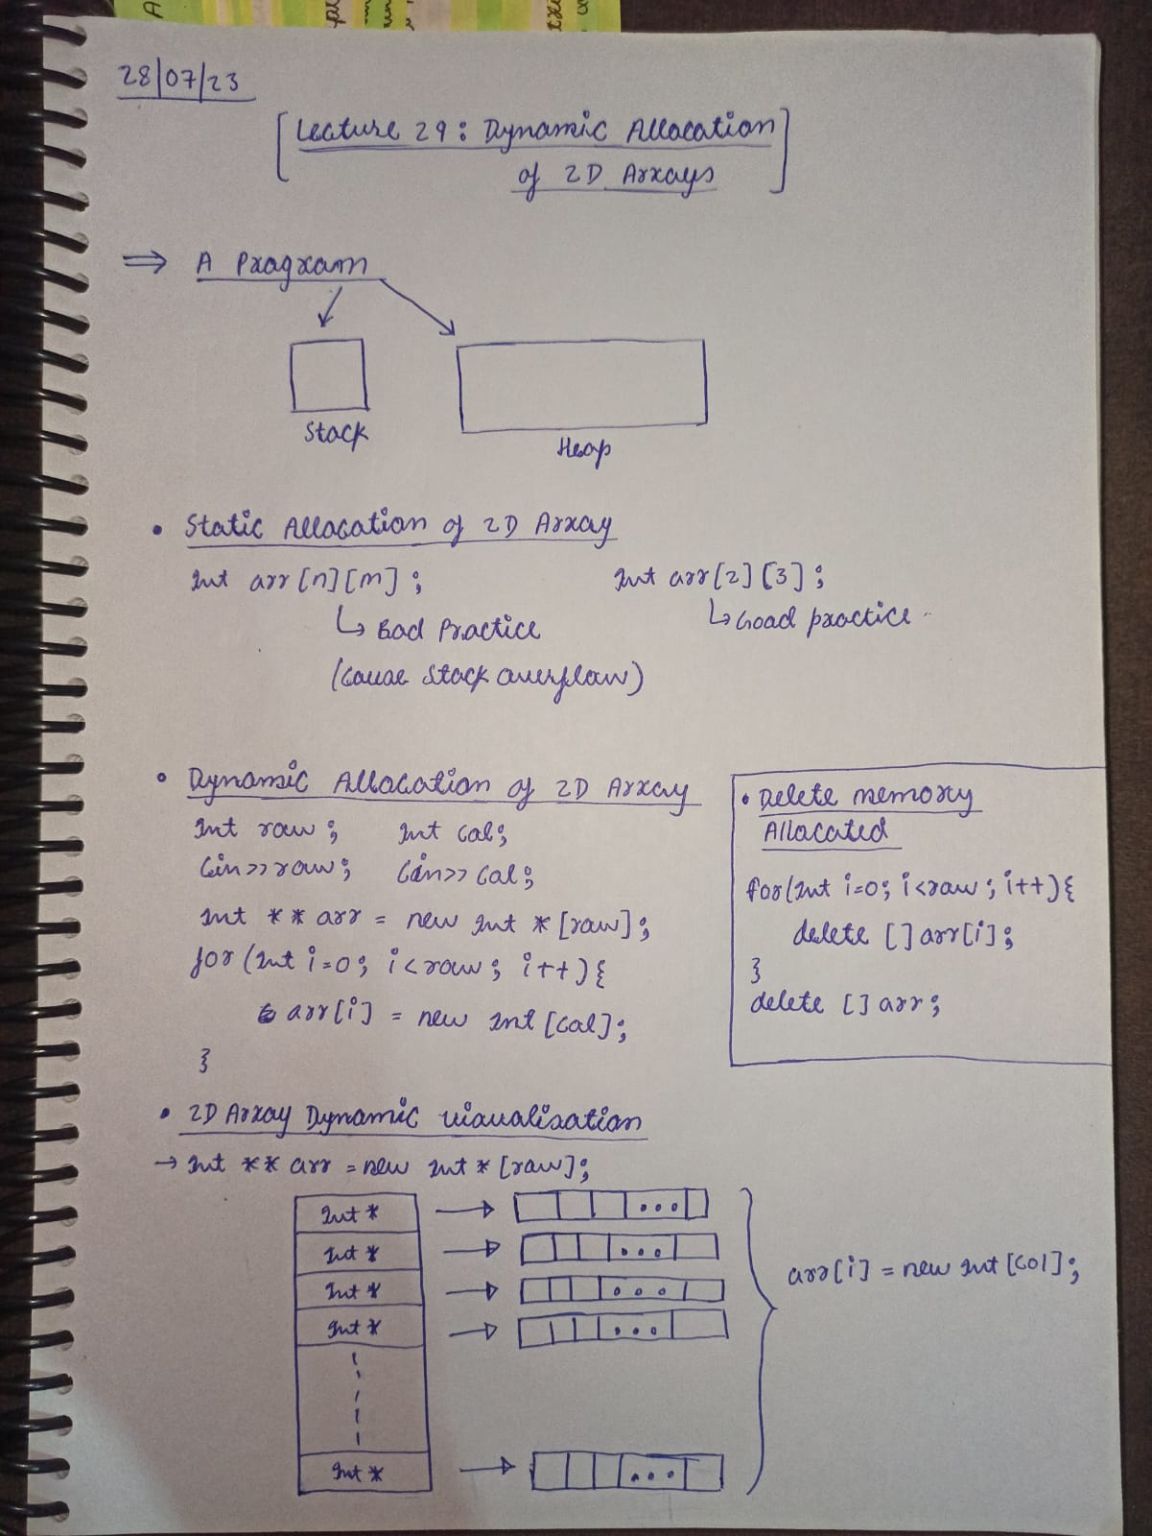 28/07/23
[Lecture 29: Dynamic Allocation
of 2D Arrays]
⇒ A Program
Stack
Heap
• Static Allocation of 2D Array
int arr[n][m];
↳ Bad Practice
(Cause Stack overflow)
int arr[2][3];
↳ Good practice
• Dynamic Allocation of 2D Array
int row; int col;
Cin>>row; Cin>> col;
int ** arr = new int * [row];
for (int i=0; i<row; i++){
arr[i] = new int [col];
}
• Delete memory
Allocated
for(int i=0; i<row; i++){
delete [] arr[i];
}
delete [] arr;
• 2D Array Dynamic visualisation
→ int ** arr = new int * [row];
int *
int *
int *
int *
int *
arr[i] = new int [col];